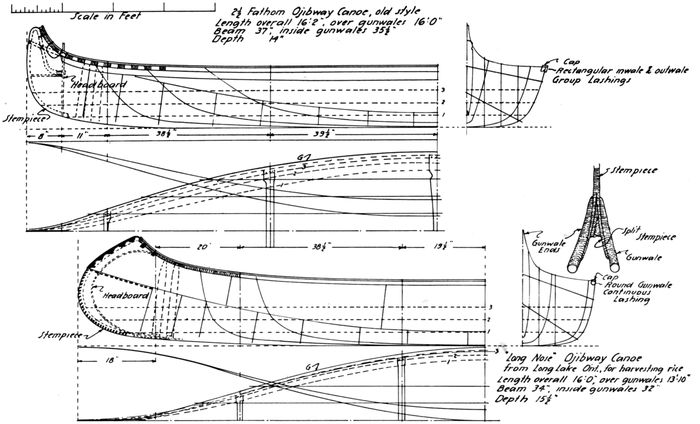 Scale in Feet
2½ Fathom Ojibway Canoe, old style
Length overall 16'2", over gunwales 16'0"
Beam 37", inside gunwales 35½"
Depth 14"
Headboard
Stempiece
3
2
1
8"
11"
38½"
39½"
Cap
Rectangular inwale & outwale
Group Lashings
G
3
2
1
Stempiece
Split
Stempiece
Gunwale
Ends
Gunwale
20"
38½"
19½"
Headboard
Stempiece
3
2
1
Cap
Round Gunwale
Continuous
Lashing
18"
G
3
2
1
"Long Nose" Ojibway Canoe
from Long Lake Ont., for harvesting rice
Length overall 16'0", over gunwales 13'10"
Beam 34", inside gunwales 32"
Depth 15½"